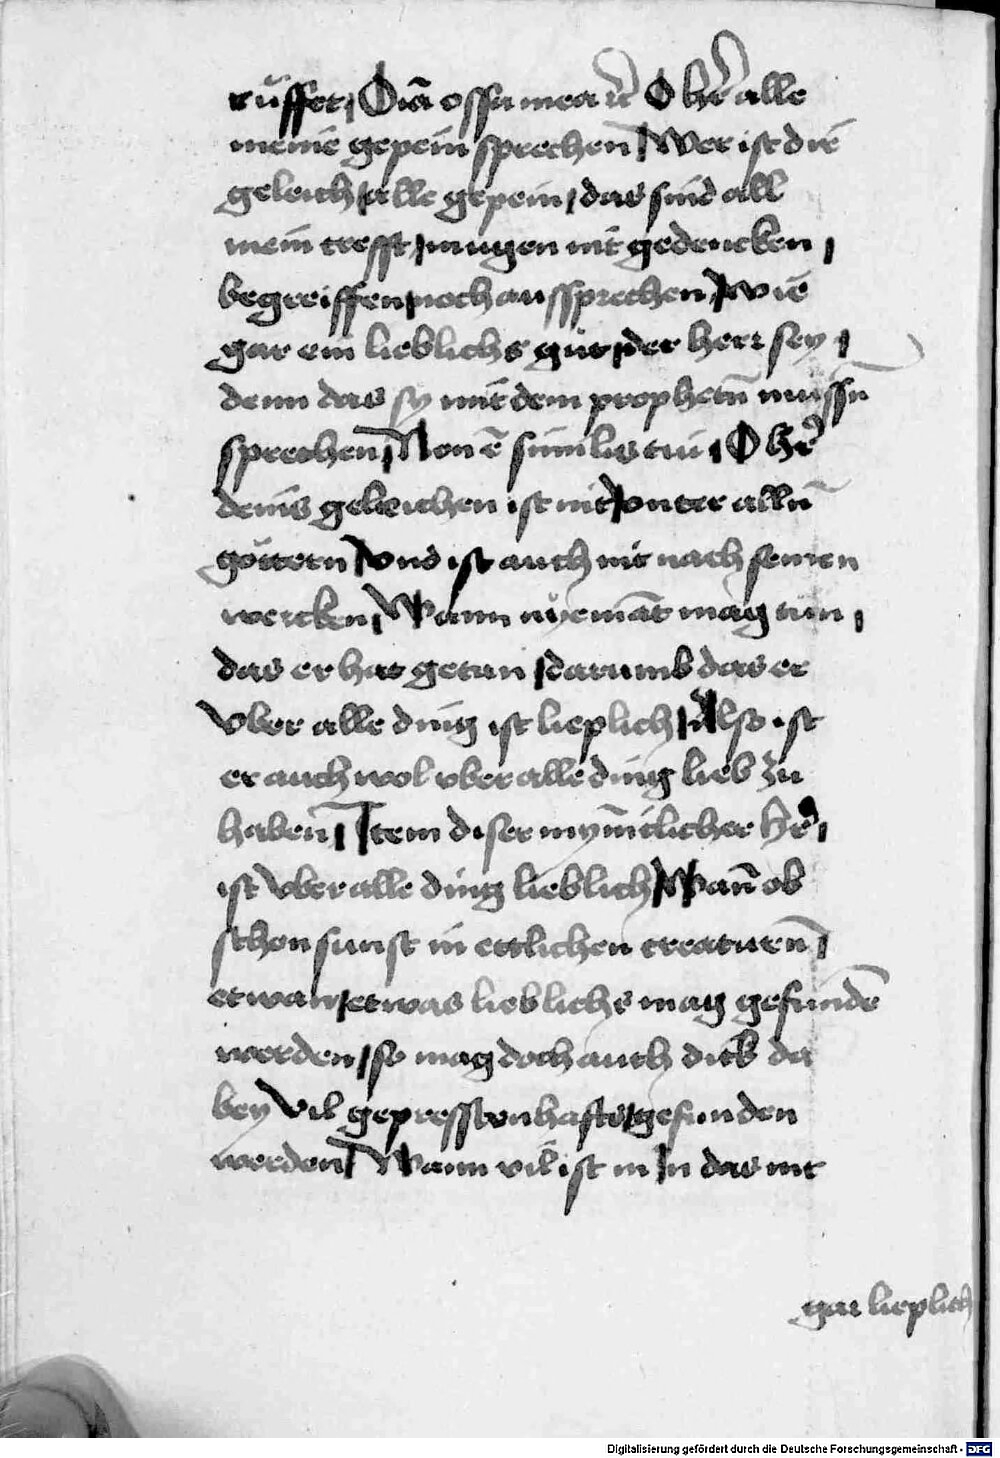 rüffet / Oīa ossa mea rc̄ O hr̄ alle
meine gepein sprechen / Wer ist dir
geleich / alle gepein / das sind all
mein crefft / mugen nit gedencken /
begreiffen / noch aussprechen / wie
gar ein lieblichs gut / der herr sey /
denn das sy mit dem prophetn̄ mussn̄
sprechen / Non ē similis tui / O hr̄
deins geleichen ist nit / vnter alln̄
göttern / vnd ist auch nit nach seinen
wercken / Wann nyemāt mag tun /
das er hat getan / darumb das er
vber alle ding ist lieplich / Also ist
er auch wol vber alle ding lieb zu
haben / Item diser mȳniclicher hr̄ /
ist vber alle ding lieblich / Wan̄ ob
schon sunst in ettlichen creaturen /
etwan / etwas lieblichs mag gefundē
werden / so mag doch auch dick da
bey vil gepresstenhafts / gefunden
werden / Wann vil ist in in das nit
gar lieplich
Digitalisierung gefördert durch die Deutsche Forschungsgemeinschaft - DFG